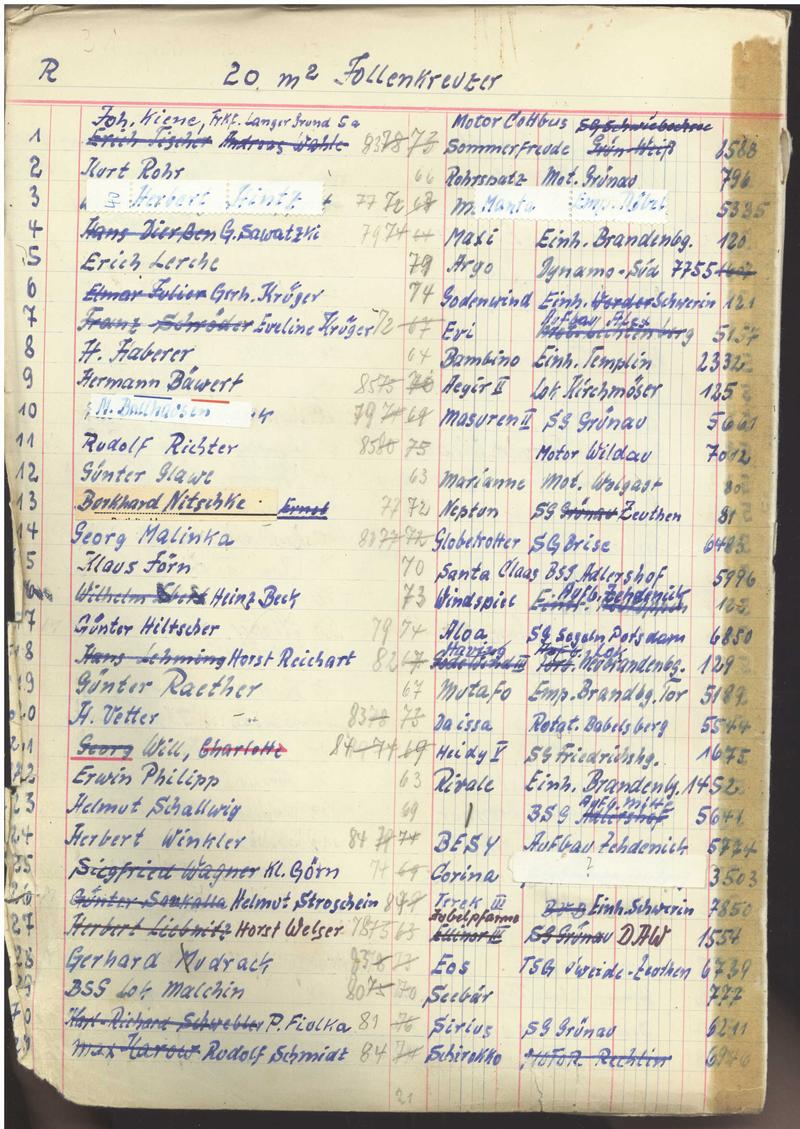 R 20 m² Jollenkreuzer
Joh. Kiene, Frkf. Langer Grund 5a Motor Cottbus
1 Erich Tischer Andreas Wahle 83 78 73 Sommerfreude Grün-Weiß
2 Kurt Rohr 66 Rohrspatz Mot. Grünau 796
3 Herbert 77 72 68 M. Manta Emp. Möbel 5335
4 Hans Dierßen G. Sawatzki 79 74 Maxi Einh. Brandenbg. 120
5 Erich Lerche 79 Argo Dynamo-Süd 7755
6 Gerh. Krüger 74 Godenwind Einh. Werder Schwerin 121
7 Franz Schröder Eveline Krüger 72 67 Evi Aufbau Alex 5157
8 H. Haberer 64 Bambino Einh. Templin 2332
9 Hermann Bäwert 85 75 70 Aegir II Lok Kirchmöser 125
10 N. Ballhausen 79 74 69 Masuren II SG Grünau 5661
11 Rudolf Richter 85 80 75 Motor Wildau 7012
12 Günter Glawe 63 Marianne Mot. Wolgast
13 Burkhard Nitschke Ernst 77 72 Neptun SG Grünau Zeuthen 81
14 Georg Malinka 72 Globetrotter SG Brise 6483
5 Klaus Törn 70 Santa Claas BSG Adlershof 5996
Wilhelm Heinz Beck 73 Windspiel Aufb. Zehdenick
7 Günter Hiltscher 79 74 Aloa SG Segeln Potsdam 6850
8 Hans Lehming Horst Reichart 82 67 Lok Neubrandenbg. 129
19 Günter Raether 67 Mutafo Emp. Brandbg. Tor 5189
20 H. Vetter 83 78 73 Daissa Rotat. Babelsberg 5544
21 Georg Will, Charlotte 84 74 69 Heidy V SG Friedrichshg. 1675
22 Erwin Philipp 63 Rivale Einh. Brandenbg. 1452
23 Helmut Schallwig 69 / BSG Adlershof Aufb. Mitte 5641
24 Herbert Winkler 84 79 74 BESY Aufbau Zehdenick 5774
25 Siegfried Wagner Kl. Görn 74 69 Corina ? 3503
26 Günter Helmut Stroschein Terek III Einh. Schwerin 7850
27 Herbert Liebnitz Horst Welser 78 73 63 Fabelpfanno SG Grünau DAW 1554
28 Gerhard Mudrack Eos TSG 6739
29 BSS Lok Malchin 80 75 70 Seebär 777
Karl-Richard Schwebler P. Fiolka 81 76 Sirius SG Grünau 6211
Max Karow Rudolf Schmidt 84 Schirokko Motor Rechlin
21